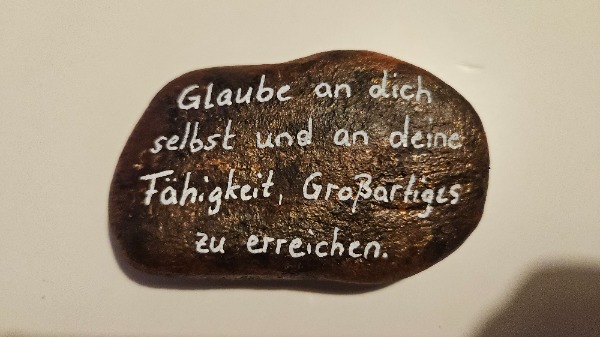 Glaube an dich
selbst und an deine
Fähigkeit, Großartiges
zu erreichen.